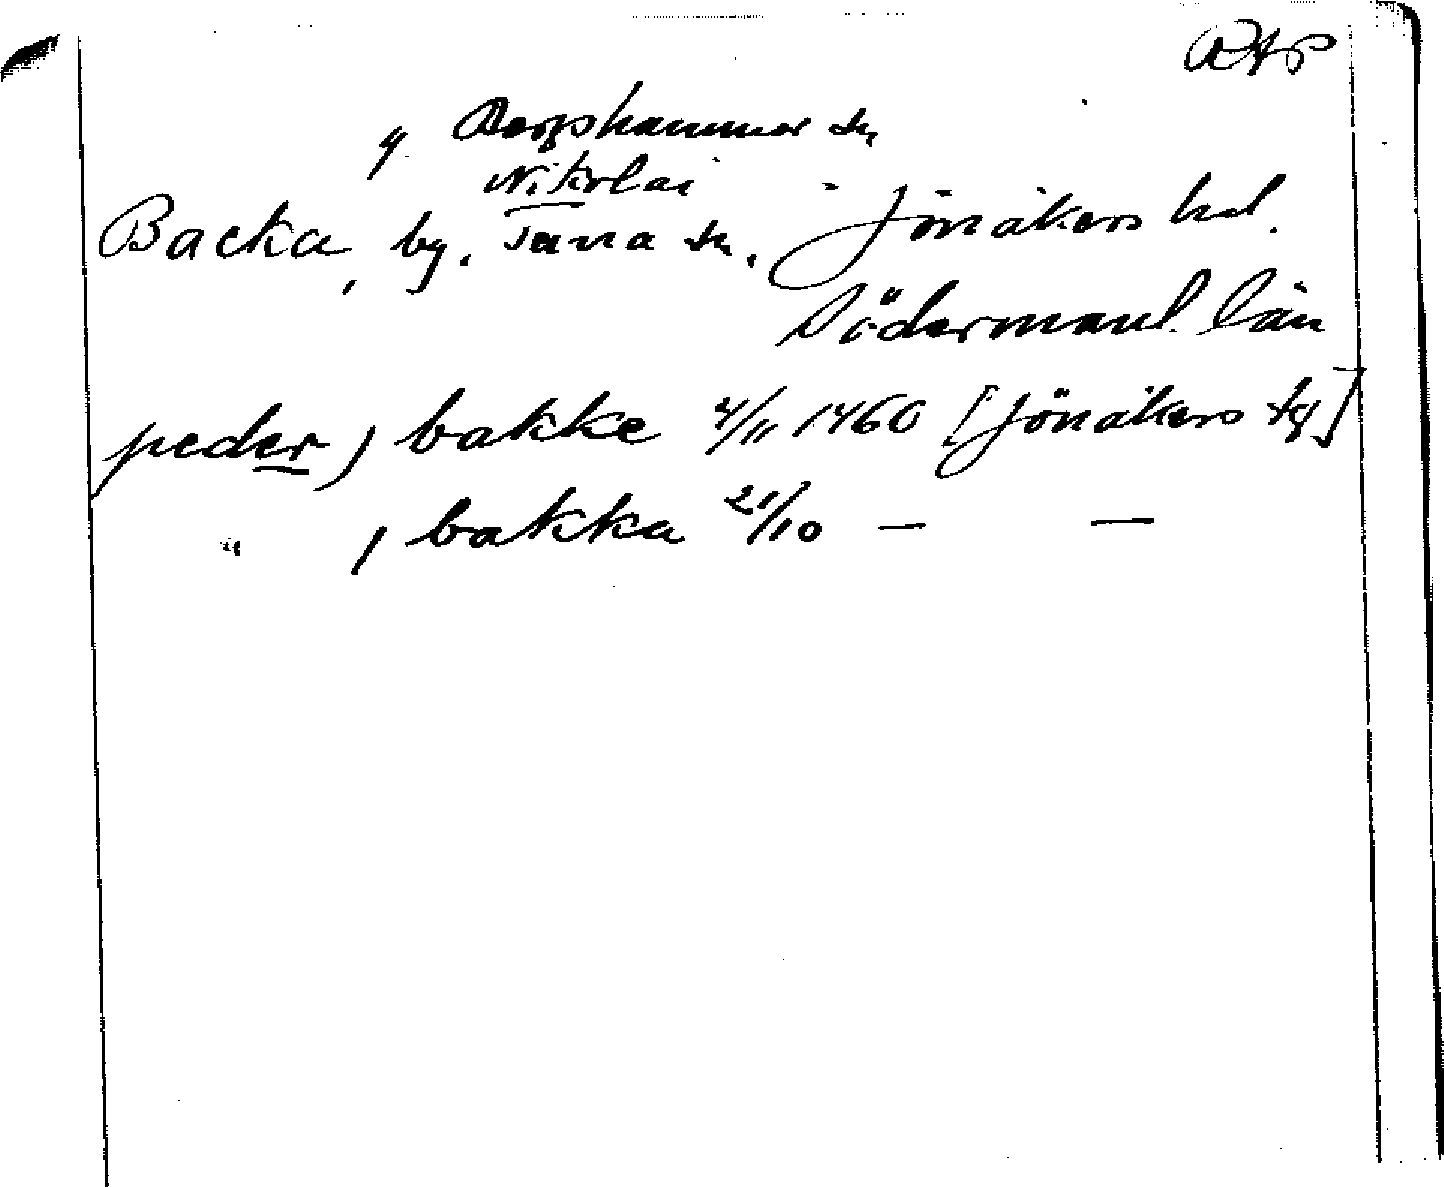 RAP
y Bergshammar sn
Nikolai
Backa, by, Tuna sn, Jönåkers hd.
Södermanl. län
peder j bakke 4/11 1460 [Jönåkers tg]
" j bakka 21/10 — —